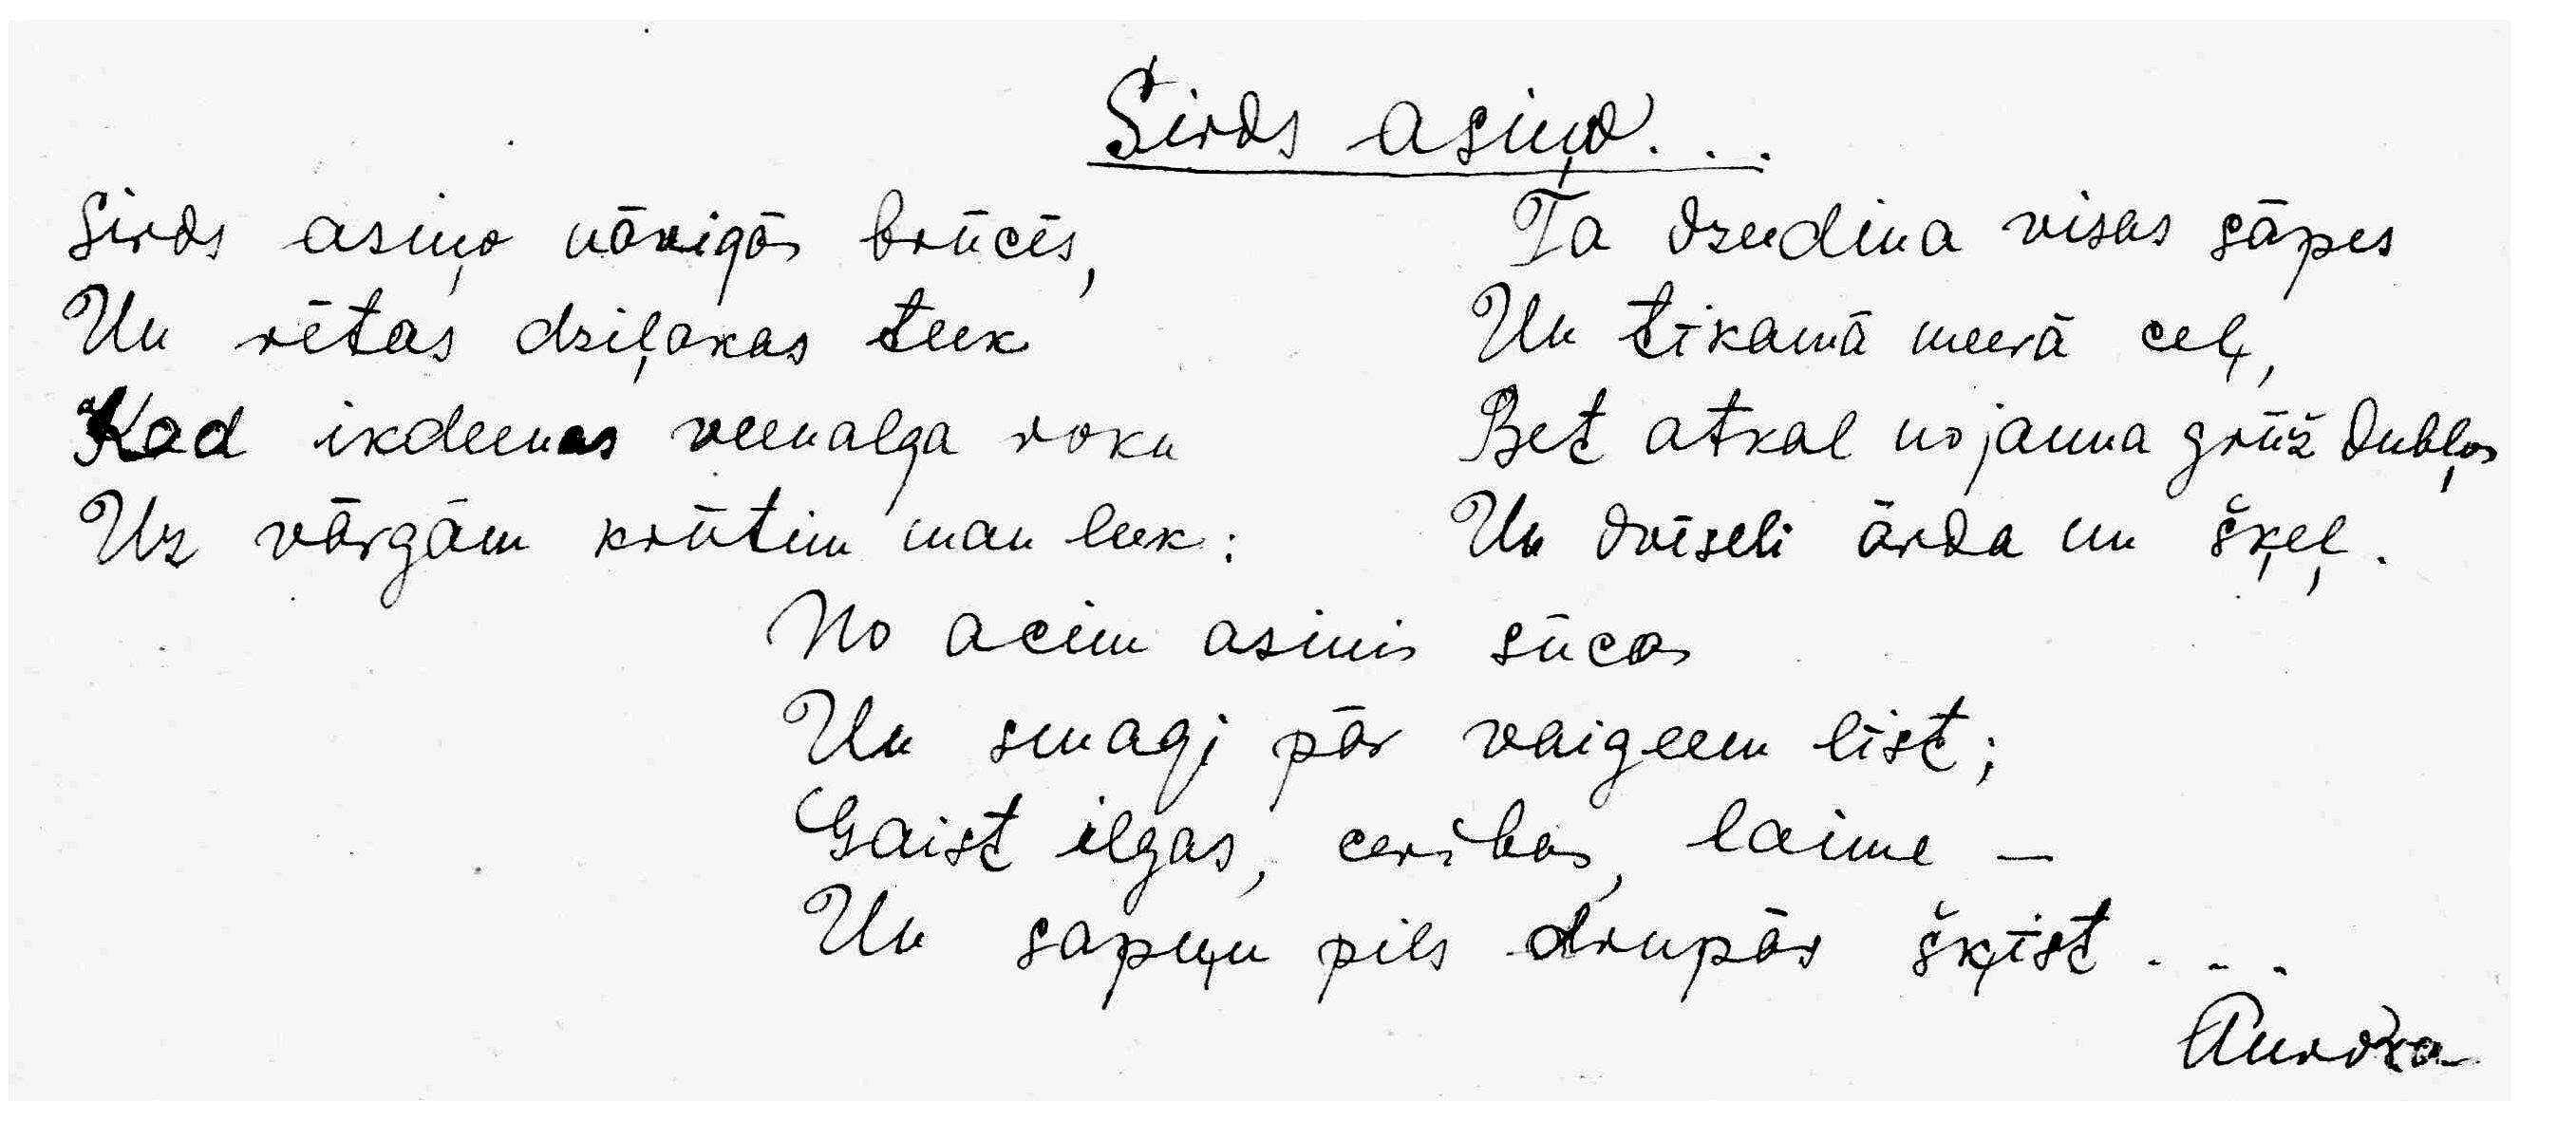 Sirds asiņo...
Sirds asiņo nāvigās brūcēs,
Un rētas dziļakas teek
Kad ikdeenas veenalga roku
Uz vārgām krūtim man leek:
Ta dzeedina visas sāpes
Un tīkamā meerā ceļ,
Bet atkal no jauna grūž dubļos
Un dvēseli ārda un šķeļ.
No acim asinis sūcas
Un smagi pār vaigeem līst;
Gaist ilgas, cerības, laime —
Un sapņu pils drupās šķīst...
Aurora